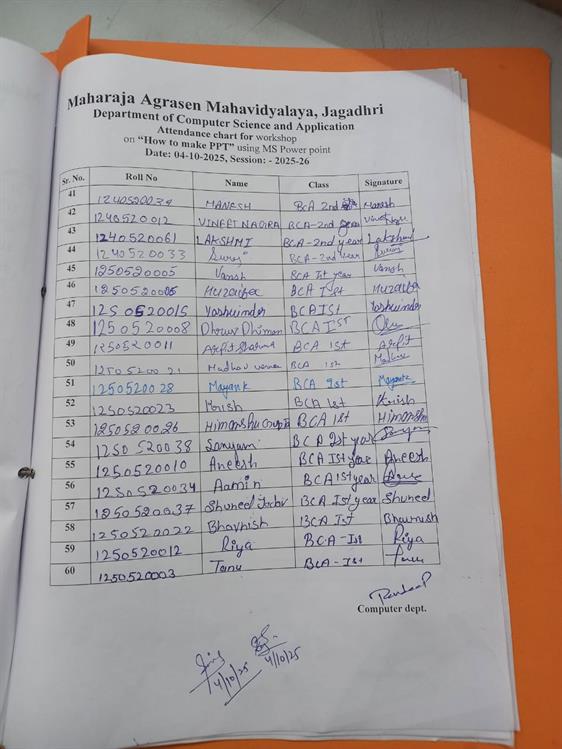 Maharaja Agrasen Mahavidyalaya, Jagadhri
Department of Computer Science and Application
Attendance chart for workshop
on “How to make PPT” using MS Power point
Date: 04-10-2025, Session: - 2025-26
Sr. No. Roll No Name Class Signature
41 1240520039 MANESH BCA 2nd Manesh
42 1240520012 VINEET NAGRA BCA-2nd year
43 1240520061 LAKSHMI BCA-2nd year Lakshmi
44 1240520033 BCA-2nd year
45 1250520005 Vansh BCA Ist year Vansh
46 Huzaifa BCA Ist Huzaifa
47 1250520015 Yashwinder BCA Ist Yashwinder
48 1250520008 Dhruv Dhiman BCA IST
49 1250520011 Arpit Sharma BCA 1st Arpit
50 1250520021 Madhav verma BCA 1st Madhav
51 1250520028 Mayank BCA 1st Mayank
52 1250520023 Krish BCA 1st Krish
53 1250520026 Himanshu Gupta BCA 1st Himanshu
54 1250520038 Sanyam BCA 1st year
55 1250520010 Aneesh BCA Ist year Aneesh
56 1250520034 Aamin BCA 1st year
57 1250520037 Shuneel BCA Ist year Shuneel
58 1250520022 Bhavnish BCA Ist Bhavnish
59 1250520012 Riya BCA-Ist Riya
60 1250520003 Tanu BCA-Ist Tanu
Computer dept.
4/10/25
4/10/25